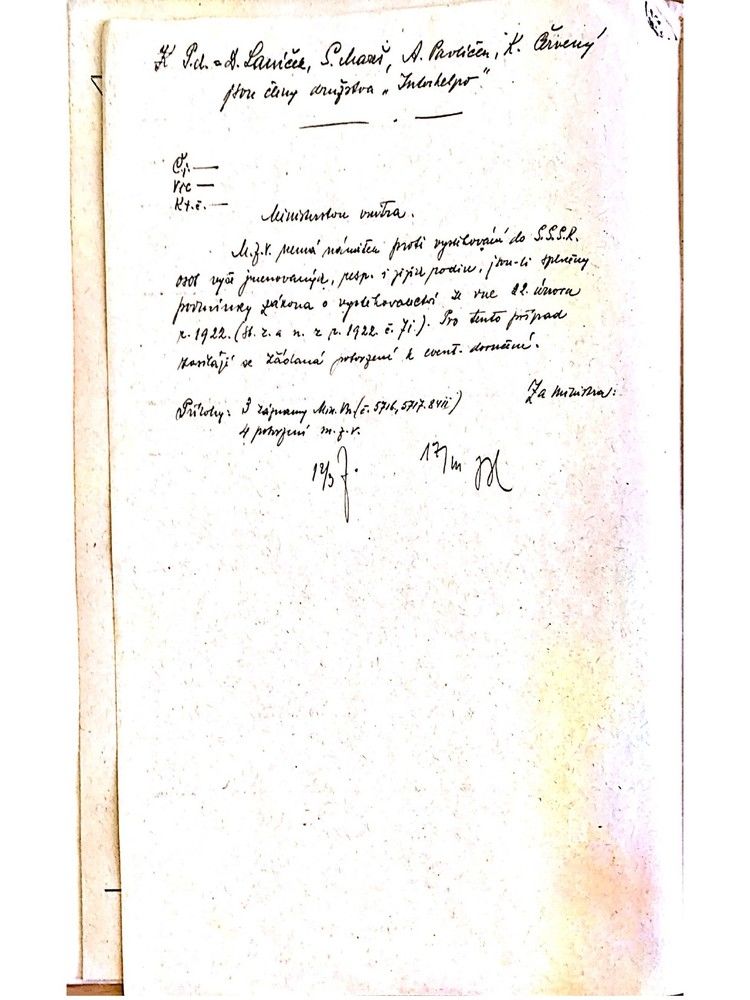 K P.d. = A. Laníček, S. Mareš, A. Pavlíček, K. Červený
jsou členy družstva „Interhelpo“
Čj. —
Věc —
Kt. č. —
Ministerstvu vnitra.
M.z.v. nemá námitek proti vystěhování do S.S.S.R.
osob výše jmenovaných, resp. i jejich rodin, jsou-li splněny
podmínky zákona o vystěhovalectví ze dne 22. února
r. 1922. (Sb. z. a n. z r. 1922 č. 71). Pro tento případ
zasílají se žádaná potvrzení k event. doručení.
Za ministra:
Přílohy: 3 záznamy Min. Vn. (č. 5716, 5717.
4 potvrzení m.z.v.
12/3
17/III